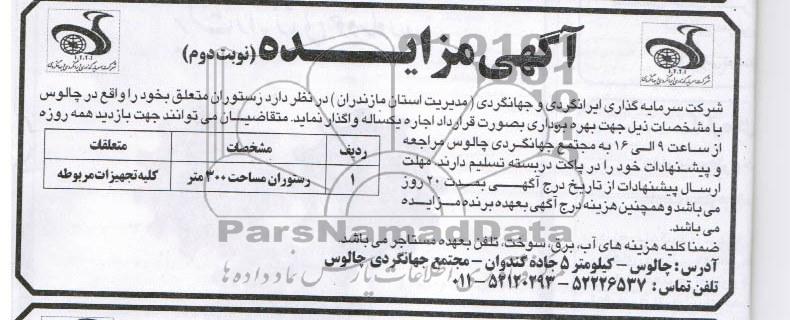 آگهی مزایـــده (نوبت دوم)
شرکت سرمایه گذاری ایرانگردی و جهانگردی (مدیریت استان مازندران) در نظر دارد رستوران متعلق بخود را واقع در چالوس
با مشخصات ذیل جهت بهره برداری بصورت قرارداد اجاره یکساله واگذار نماید. متقاضیان می توانند جهت بازدید همه روزه
از ساعت ۹ الی ۱۶ به مجتمع جهانگردی چالوس مراجعه
و پیشنهادات خود را در پاکت دربسته تسلیم دارند. مهلت
ارسال پیشنهادات از تاریخ درج آگهی بمدت ۲۰ روز
می باشد و همچنین هزینه درج آگهی بعهده برنده مزایده
می باشد.
ردیف مشخصات متعلقات
۱ رستوران مساحت ۳۰۰ متر کلیه تجهیزات مربوطه
ضمنا کلیه هزینه های آب، برق، سوخت، تلفن بعهده مستاجر می باشد.
آدرس: چالوس - کیلومتر ۵ جاده گندوان - مجتمع جهانگردی چالوس
تلفن تماس: ۵۲۲۲۶۵۳۷ - ۵۲۱۲۰۲۹۳ - ۰۱۱
ParsNamadData